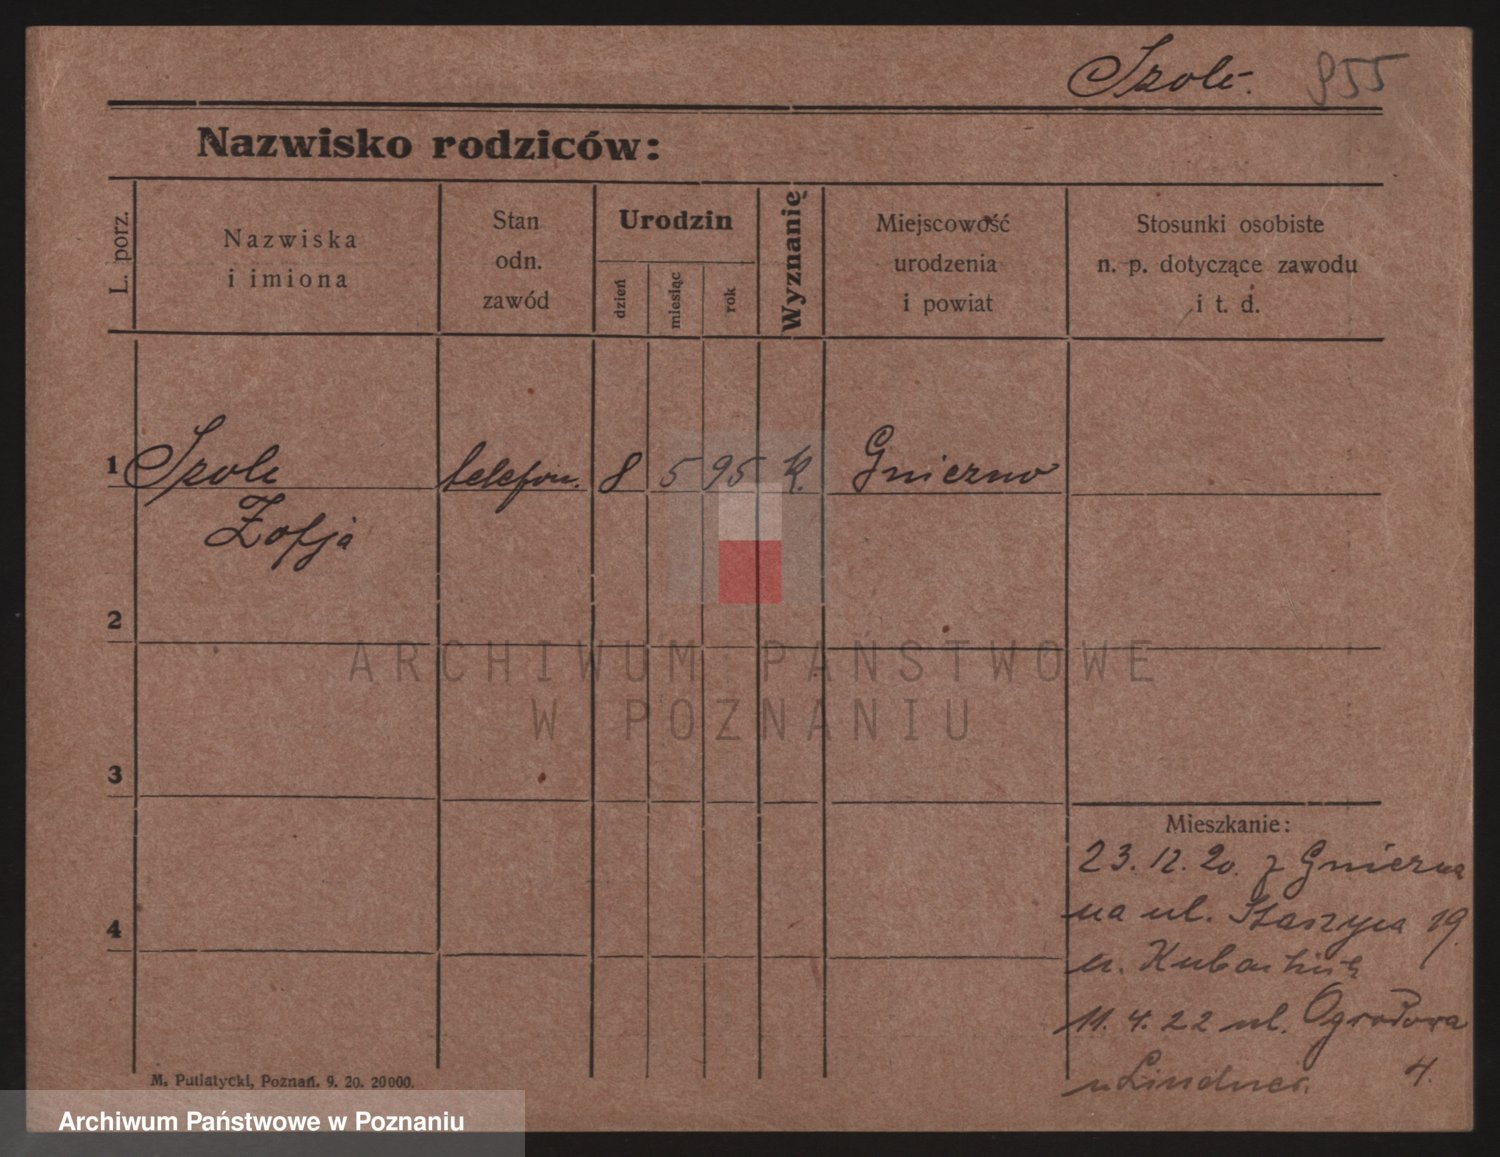 Szolc. 955
Nazwisko rodziców:
L. porz.
Nazwiska
i imiona
Stan
odn.
zawód
Urodzin
dzień
miesiąc
rok
Wyznanię
Miejscowość
urodzenia
i powiat
Stosunki osobiste
n. p. dotyczące zawodu
i t. d.
1 Szolc telefon. 8 5 95 k. Gniezno
Zofja
2
ARCHIWUM PAŃSTWOWE
W POZNANIU
3
Mieszkanie:
23. 12. 20. z Gniezna
na ul. Staszyca 19.
u.
4
11. 4. 22 ul. Ogrodowa
4.
u Lindner.
M. Putiatycki, Poznań. 9. 20. 20000.
Archiwum Państwowe w Poznaniu